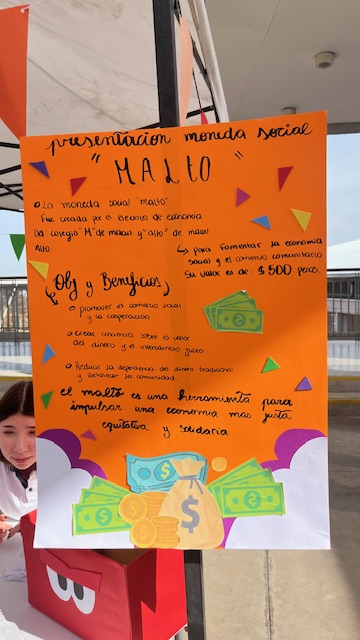 presentación moneda social
"MALTO"
La moneda social "malto"
Fue creada por el electivo de economia
Del colegio "M" de macul y "alto" de macul
Alto.
↳ para fomentar la economia
social y el comercio comunitario
Su valor es de: $500 pesos.
Obj y Beneficios
promover el comercio social
y la cooperación
Crear conciencia sobre el valor
del dinero y el intercambio justo.
Reducir la dependencia del dinero tradicional
y fortalecer la comunidad.
el malto es una herramienta para
impulsar una economia mas justa
equitativa y solidaria
$
$
$
$